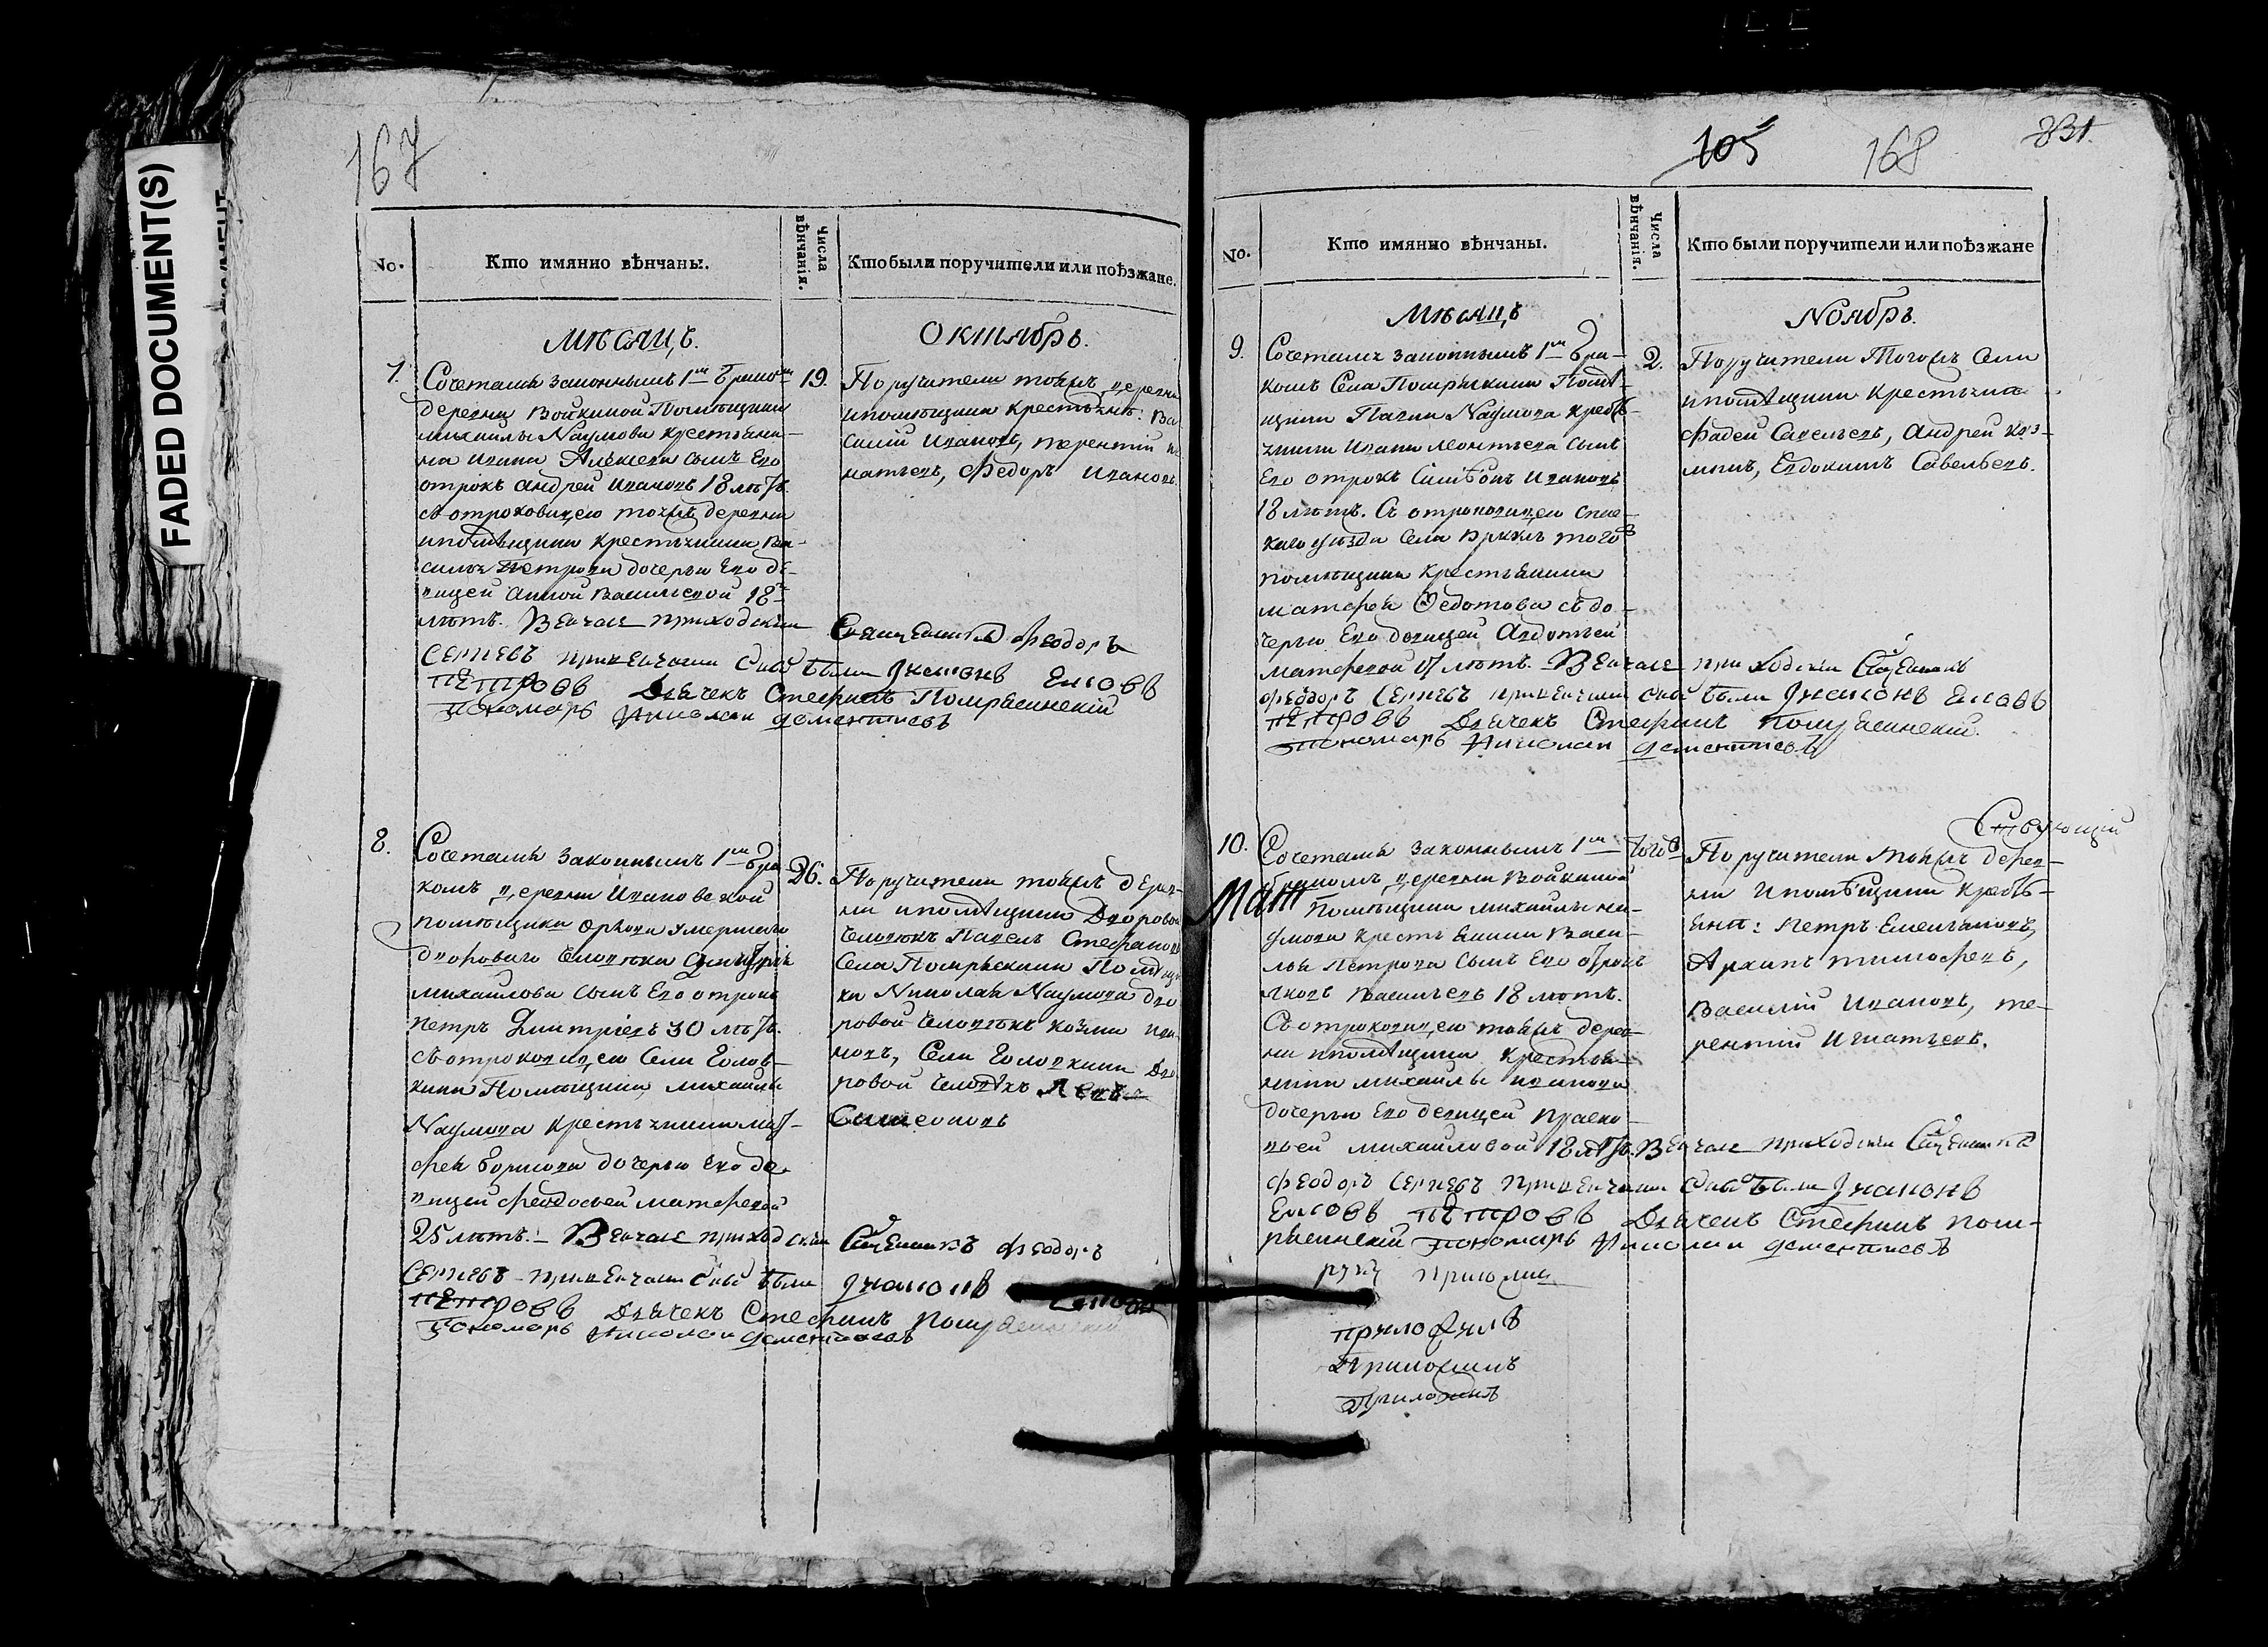 FADED DOCUMENT(S)
167
No.
Кто имянно вѣнчаны.
Числа вѣнчанія.
Кто были поручители или поѣзжане.
Мѣсяцъ.
Октябрь.
7.
Сочетаны законнымъ 1мъ бракомъ
деревни Войкиной Помѣщика
Михаилы Наумова крестьяни-
на Ивана Алексѣева сынъ Его
отрокъ Андрей Ивановъ 18 лѣтъ
съ отроковицею тояжъ деревни
и помѣщика крестьянина Ва-
силья Петрова дочерью Его дѣ-
вицей Анной Васильевой 18
лѣтъ. Вѣнчалъ приходскій Священникъ Феодоръ
Сергѣевъ при венчаніи были Диаконъ
Петровъ Дьячекъ Стефанъ
Пономарь Николай Дементиевъ
19.
Поручители тояжъ деревни
и помѣщика крестьяне: Ва
силій Ивановъ, Терентій
натьевъ, Федоръ Ивановъ
8.
Сочетаны законнымъ 1мъ бра
комъ деревни Ивановской
помѣщика умершаго
двороваго человѣка
Михаилова сынъ Его отрокъ
Петръ Дмитріевъ 30 лѣтъ.
съ отроковицею Села Голов-
кина Помѣщика Михаилы
Наумова крестьянина Мат-
фея Борисова дочерью Его де-
вицей Феодосьей Матфеевой
25 лѣтъ. Вѣнчалъ приходскій Священникъ Феодоръ
Сергѣевъ при венчаніи были Диаконъ
Петровъ Дьячекъ Стефанъ
Пономарь Николай Дементиевъ
26.
Поручители тояжъ дерев-
ни и помѣщика Дворовой
человѣкъ Павелъ Стефановъ
Села Помѣщи
ка Николая Наумова дво
ровой человѣкъ Козма Ива
новъ, Села Головкина Дво
ровой человѣкъ
Симеоновъ
105
168
831.
No.
Кто имянно вѣнчаны.
Числа вѣнчанія.
Кто были поручители или поѣзжане
Мѣсяцъ
Ноябрь.
9.
Сочетаны законнымъ 1мъ бра-
комъ Села Помѣ-
щика Павла Наумова кресть-
янина Ивана Леонтьева сынъ
Его отрокъ Симеонъ Ивановъ
18 лѣтъ. Съ отроковицею
каго уѣзда Села тогожъ
помѣщика крестьянина
Матфея Федотова съ до-
черью Его девицей Авдотьей
Матфеевой 17 лѣтъ. Вѣнчалъ приходскій Священникъ
Феодоръ Сергѣевъ при венчаніи были Диаконъ
Петровъ Дьячекъ Стефанъ
Пономарь Николай Дементиевъ
2.
Поручители Тогожъ Села
и помѣщика Крестьяна
Фадей Савельевъ, Андрей Коз-
минъ, Евдокимъ Савельевъ.
10.
Сочетаны законнымъ 1мъ
бракомъ деревни Войкиной
Мат
Помѣщика Михаилы На-
умова крестьянина Васи-
лья Петрова сынъ Его отрокъ
Яковъ Васильевъ 18 лѣтъ.
Съ отроковицею тояжъ дерев-
ни и помѣщика крестья-
нина Михаилы Иванова
дочерью Его девицей Праско-
вьей Михайловой 18 лѣтъ. Вѣнчалъ приходскій Священникъ
Феодоръ Сергѣевъ при венчаніи были Диаконъ
Петровъ Дьячекъ Стефанъ
Пономарь Николай Дементиевъ
руку приложи
приложилъ
Приложилъ
Приложилъ
Поручители тояжъ дерев-
ни и помѣщика кресть-
яне: Петръ Емельяновъ,
Архипъ Тимофеевъ,
Василій Ивановъ, Те-
рентій Игнатьевъ.